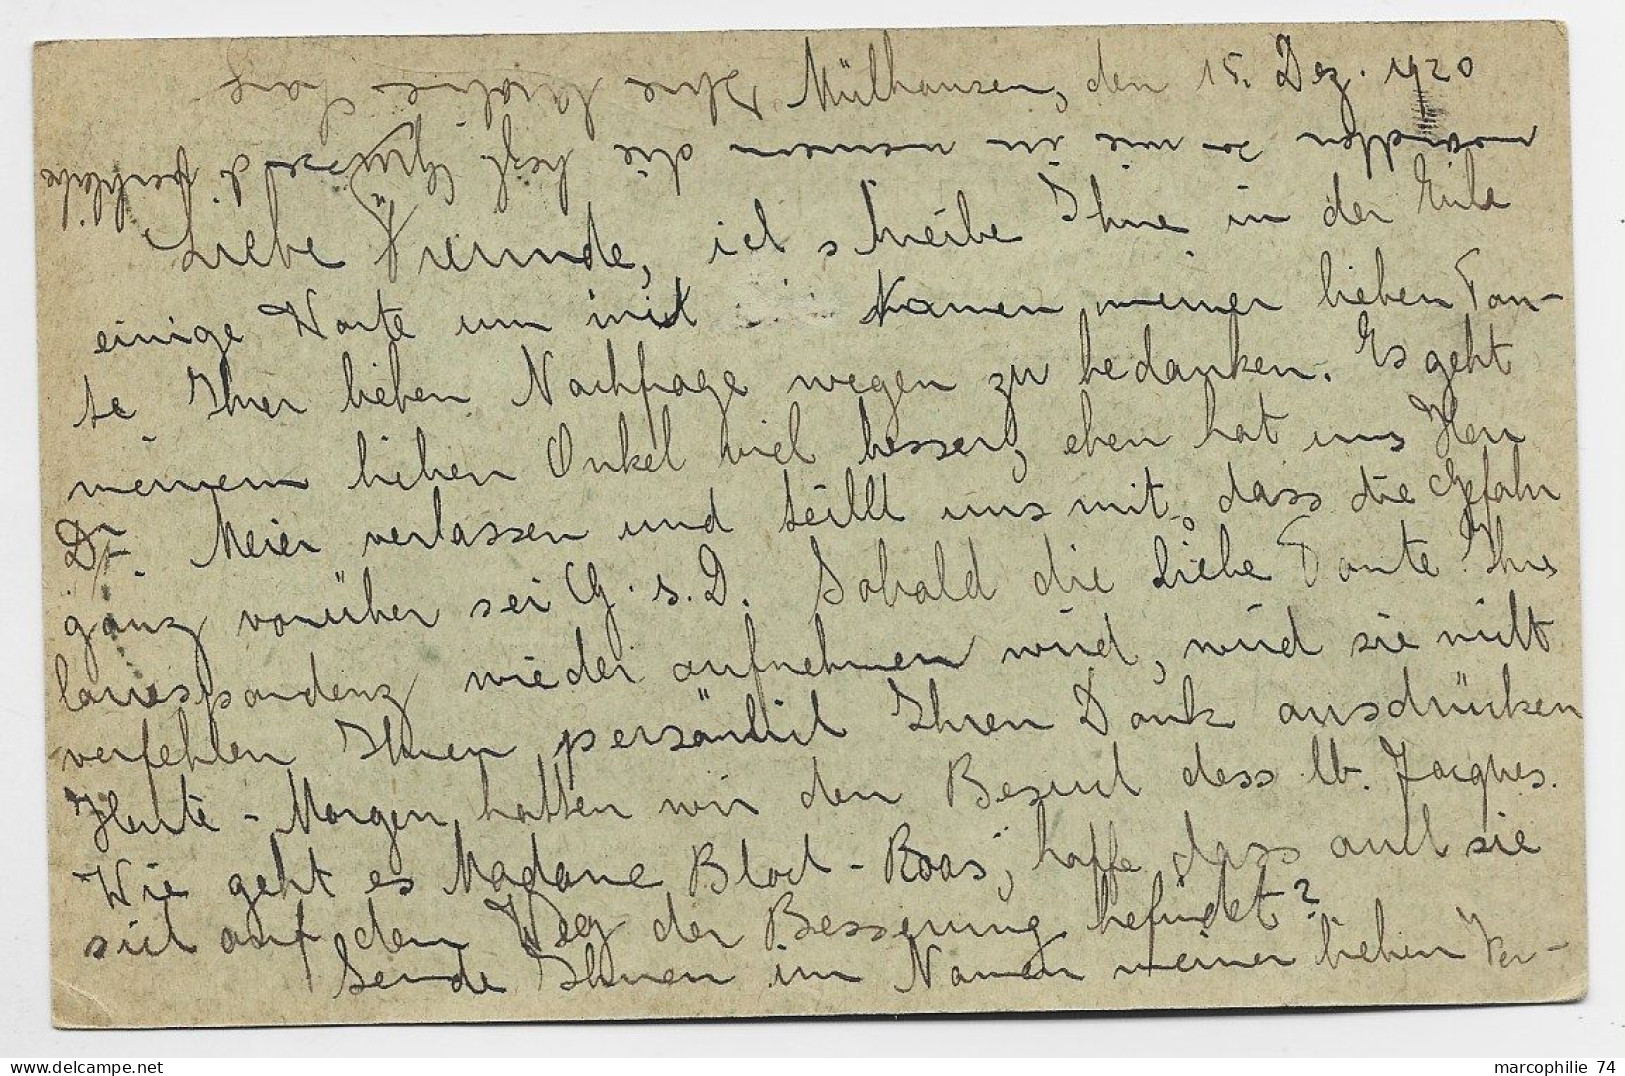 Mülhausen, den 15. Dez. 1920
Liebe Freunde, ich schreibe Ihne in der Eile
einige Worte um mich Namen meiner lieben Tan-
te Ihrer lieben Nachfrage wegen zu bedanken. Es geht
meinem lieben Onkel viel besser, eben hat uns Herr
Dr. Meier verlassen und teillt uns mit, dass die Gefahr
ganz vorüber sei G. s. D. Sobald die liebe Tante Ihre
Correspondenz wieder aufnehmen wird, wird sie nicht
verfehlen Ihnen persönlich Ihren Dank ausdrücken
Heute-Morgen hatten wir den Besuch dess lb. Jacques.
Wie geht es Madame Bloch-Boas, hoffe, dass auch sie
sich auf dem Weg der Besserung befindet?
Sende Ihnen im Namen meiner lieben Ver-
wandten so wie in meinem die herzl. Grüsse
Ihre
marcophilie 74